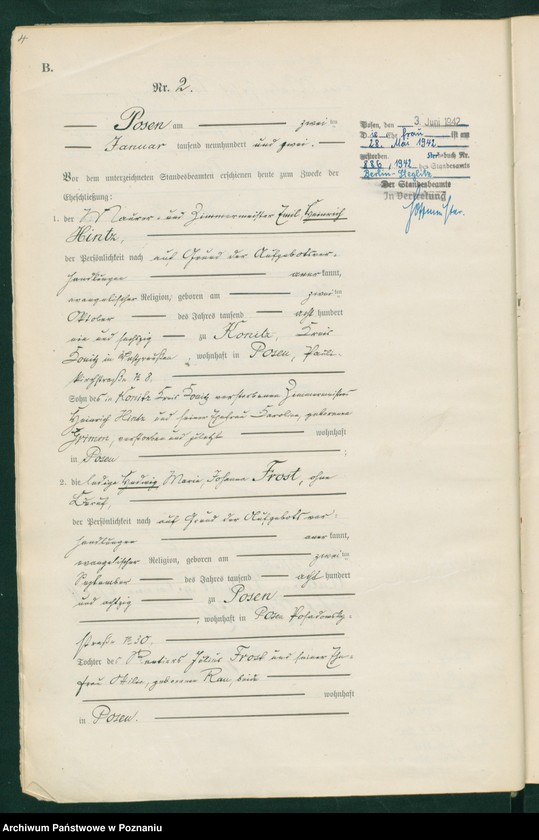 4
B.
Nr. 2.
Posen am zwei ten
Januar tausend neunhundert und zwei.
Vor dem unterzeichneten Standesbeamten erschienen heute zum Zwecke der
Eheschließung:
1. der Maurer- und Zimmermeister Emil Heinrich
Hintz,
der Persönlichkeit nach auf Grund der Aufgebotsver-
handlungen anerkannt,
evangelischer Religion, geboren am zweiten
Oktober des Jahres tausend acht hundert
und sechzig zu Konitz, Kreis
Konitz in Westpreußen, wohnhaft in Posen, Pauli-
kirchstraße N 8,
Sohn des in Konitz Kreis Konitz verstorbenen Zimmermeisters
Heinrich Hintz und seiner Ehefrau Karoline, geborenen
verstorben und zuletzt wohnhaft
in Posen ;
2. die ledige Hedwig Marie Johanna Frost, ohne
Beruf,
der Persönlichkeit nach auf Grund der Aufgebotsver-
handlungen anerkannt,
evangelischer Religion, geboren am zweiten
September des Jahres tausend acht hundert
und achtzig zu Posen
, wohnhaft in Posen Posadowsky-
straße N 30.
Tochter des Rentiers Julius Frost und seiner Ehe-
frau geborenen Rau, beide
wohnhaft
in Posen.
Posen, den 3. Juni 1942
Die Ehefrau ist am
28. Mai 1942
gestorben. Sterbebuch Nr.
886/1942 des Standesamts
Berlin-Steglitz
Der Standesbeamte
In Vertretung
Archiwum Państwowe w Poznaniu